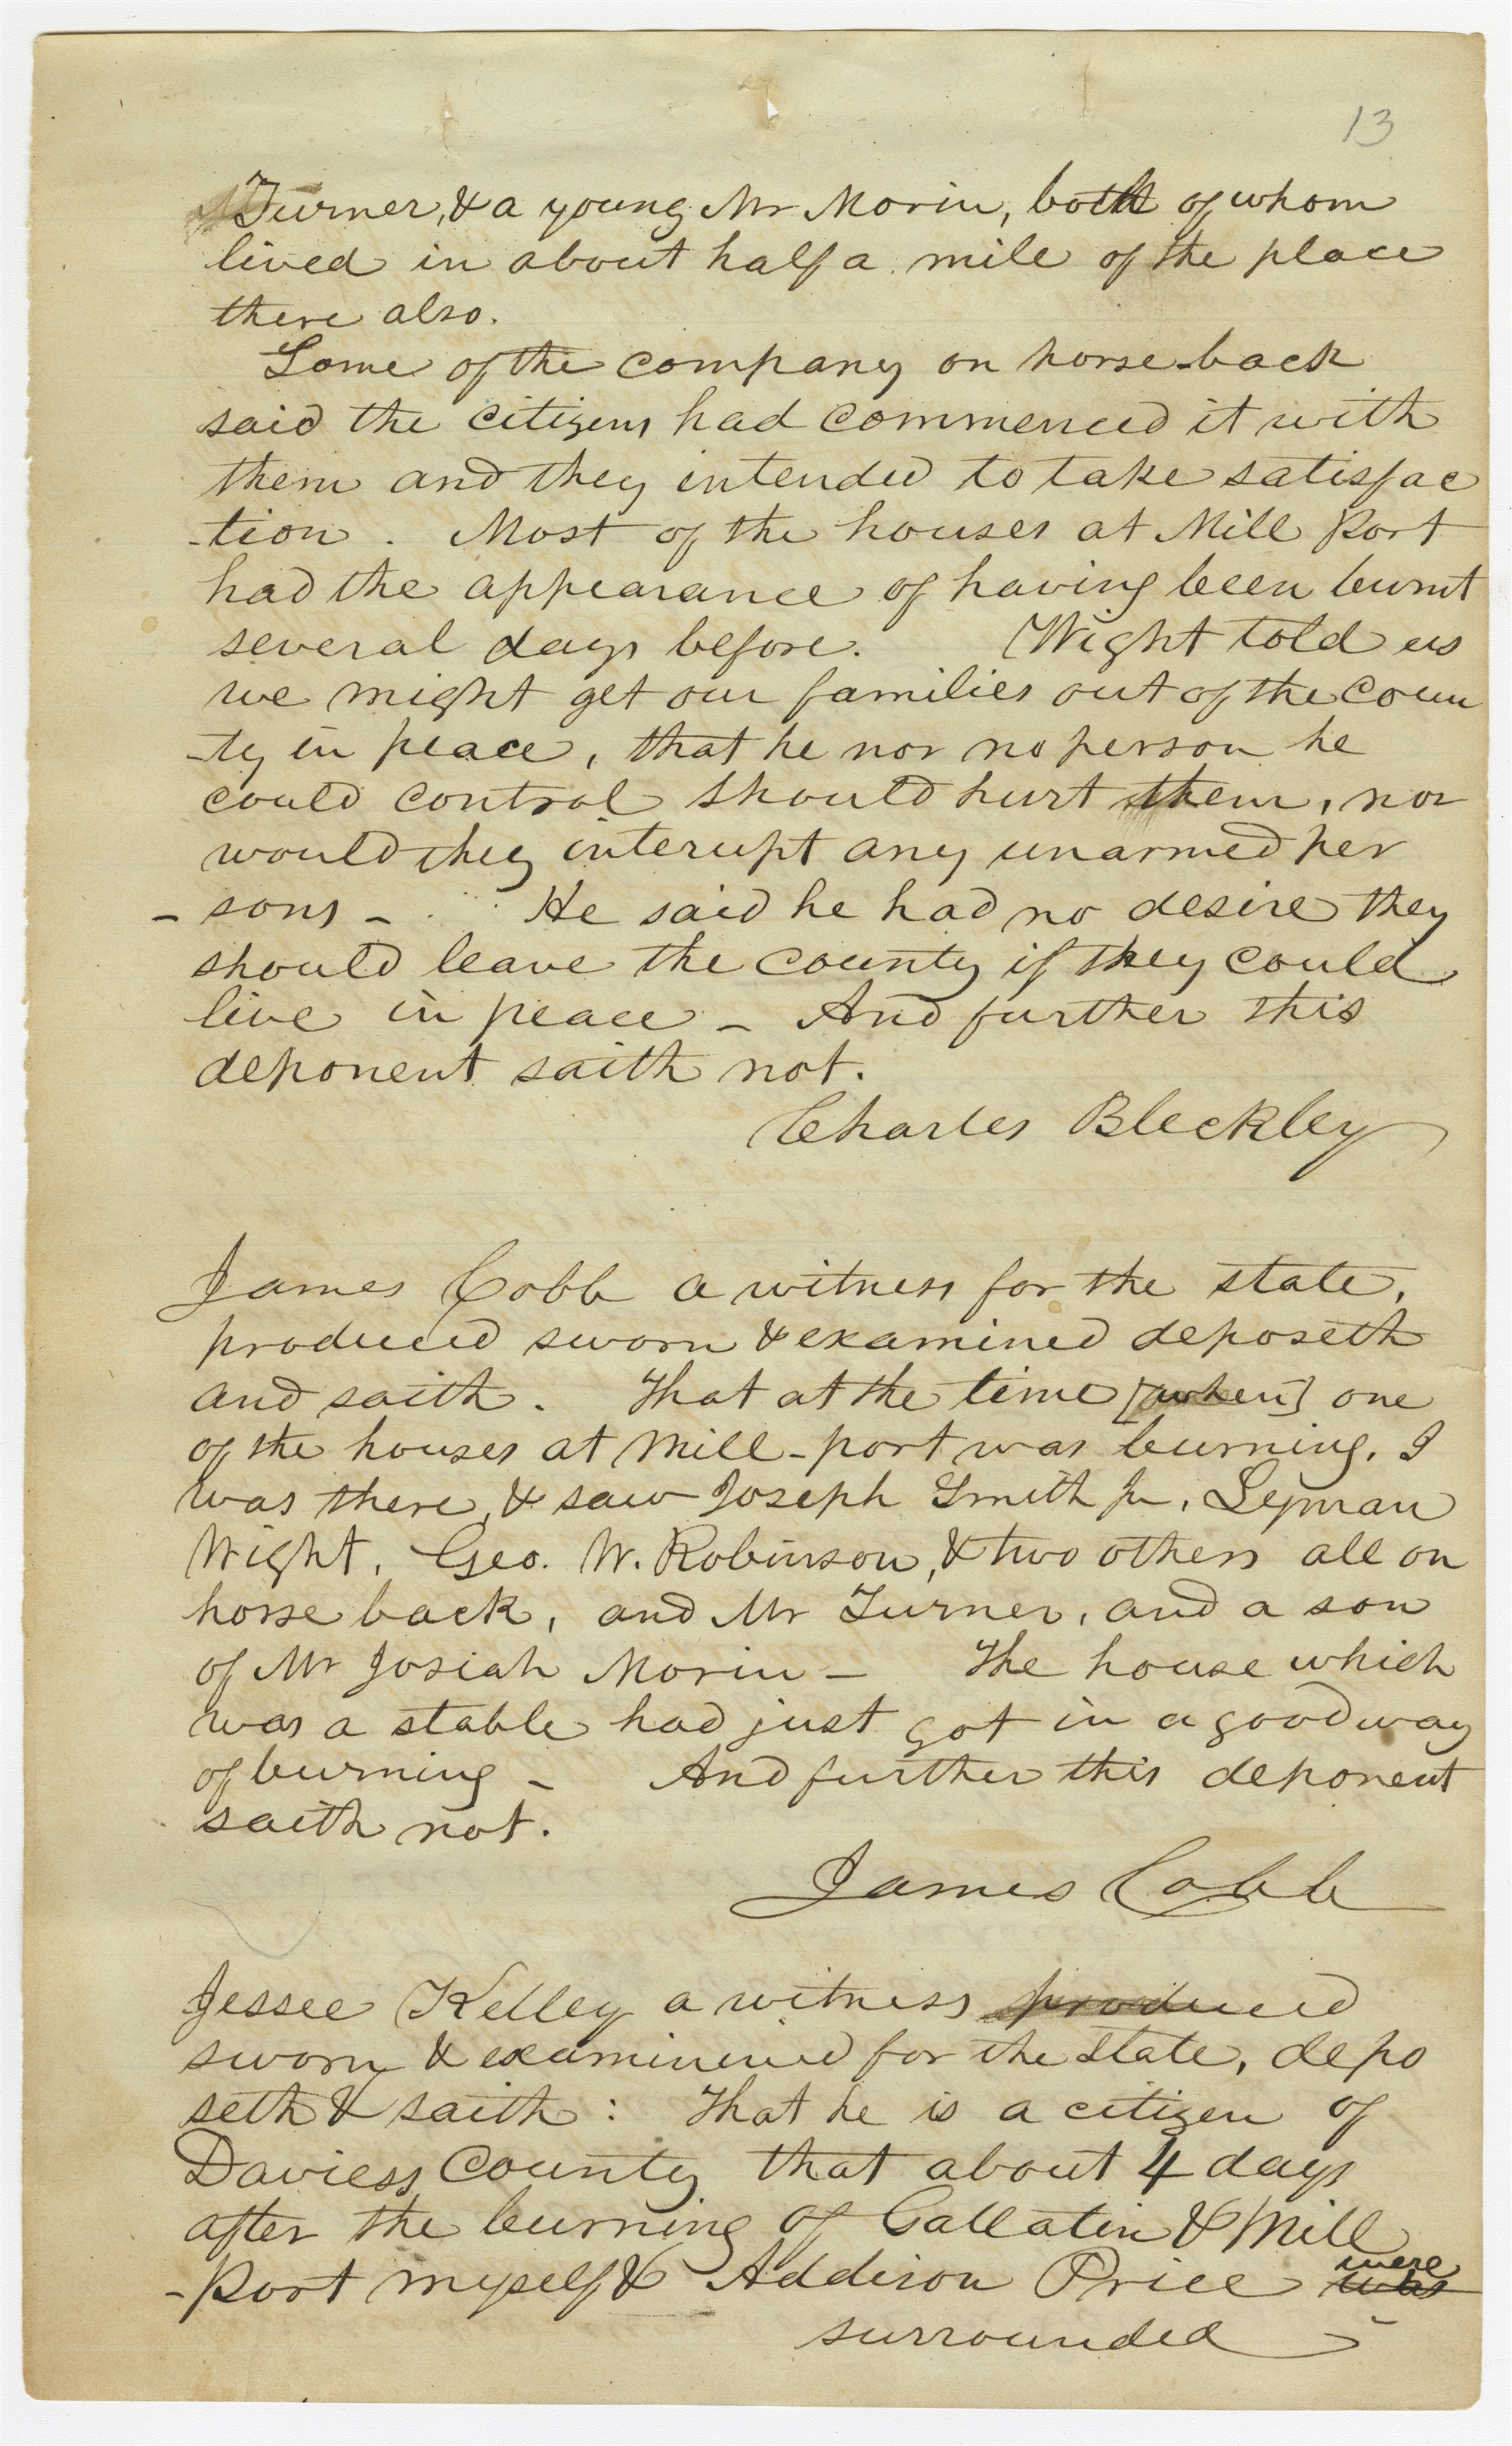 13
Turner, & a young Mr Morin, both of whom
lived in about half a mile of the place
there also.
Some of the company on horse-back
said the citizens had commenced it with
them and they intended to take satisfac
-tion. Most of the houses at Mill Port
had the appearance of having been burnt
several days before. Wight told us
we might get our families out of the coun
-ty in peace, that he nor no person he
could control should hurt them, nor
would they interupt any unarmed per
- sons - He said he had no desire they
should leave the county if they could
live in peace - And further this
deponent saith not.
Charles Bleckley
James Cobb a witness for the state,
produced sworn & examined deposeth
and saith. That at the time [when] one
of the houses at Mill-port was burning, I
was there, & saw Joseph Smith Jr, Lyman
Wight, Geo. W. Robinson, & two others all on
horse back, and Mr Turner, and a son
of Mr Josiah Morin - The house which
was a stable had just got in a good way
of burning - And further this deponent
saith not.
James Cobb
Jessee Kelley a witness produced
sworn & examinined for the state, depo
seth & saith: That he is a citizen of
Daviess County that about 4 days
after the burning of Gallatin & Mill
-Port myself & Addison Price was were
surrounded -